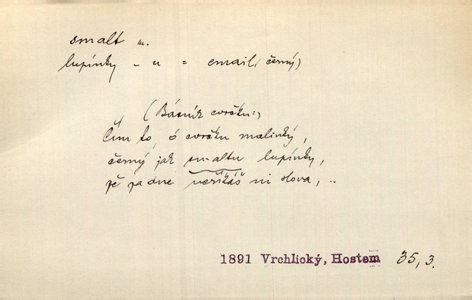 smalt m.
lupínky – u = email (černý)
(Básník cvrčku:)
Čím to, ó cvrčku malinký,
černý jak smaltu lupínky,
že ve dne neříkáš ni slova, ..
1891 Vrchlický, Hostem 35, 3.